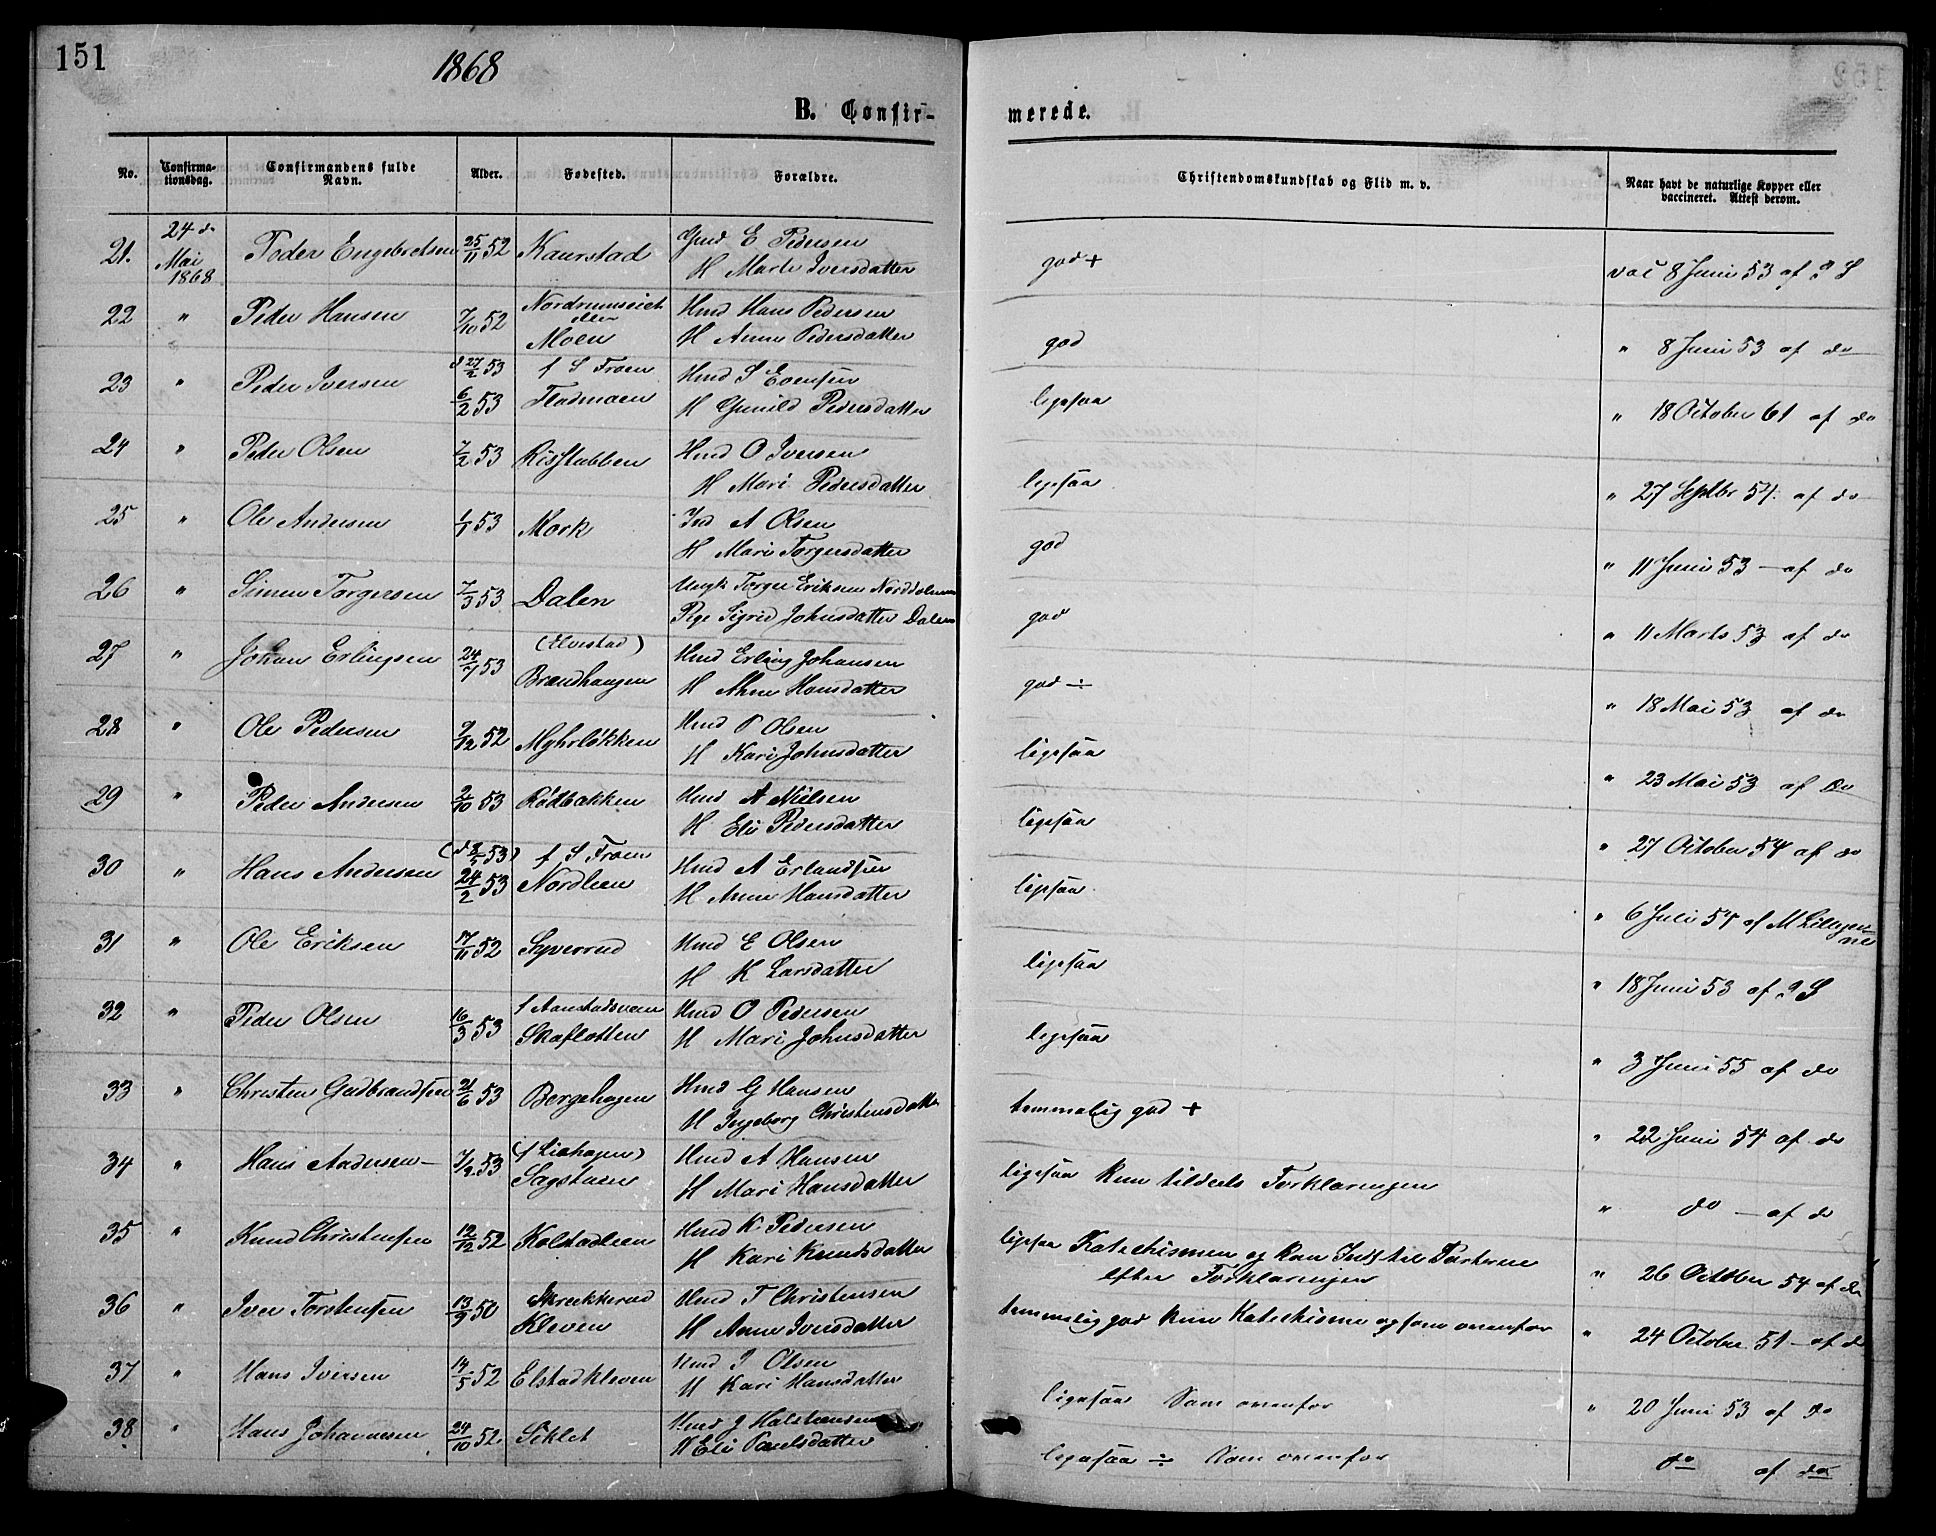 151
1868
B. Confir-
merede.
No. Confirma-tionsdag. Confirmandens fulde Navn. Alder. Fødested. Forældre. Christendomskundskab og Flid m. v. Naar havt de naturlige Kopper eller vaccineret. Attest derom.
21. 24 d Mai 1868 Peder Engebretsen 25/11 52 Kaurstad Gmd E Pedersen god + vac 8 Juni 53 af
H Marte Iversdatter
22 " Peder Hansen 7/10 52 Moen Hmd Hans Pedersen god " 8 Juni 53 af do
H Anne Pedersdatter
23 " Peder Iversen d 27/2 53 f S Froen Hmd I Evensen ligesaa " 18 October 61 af do
6/2 53 Flodmoen H Gunild Pedersdatter
24 " Peder Olsen 7/2 53 Risstubben Hmd O Iversen ligesaa " 27 Septbr 54 af do
H Mari Pedersdatter
25 " Ole Andersen 1/1 53 Mork Ind A Olsen god " 11 Juni 53 - af do
H Mari Torgersdatter
26 " Simen Torgersen 7/3 53 Dalen Ungk Torger Eriksen Norddalen god " 11 Marts 53 af do
Pige Sigrid Johnsdatter Dalen
27 " Johan Erlingsen 24/7 53 (Elvestad) Hmd Erling Johansen god ÷ " 18 Mai 53 af do
Brandhaugen H Anne Hansdatter
28 " Ole Pedersen 9/12 52 Myhrløkken Hmd P Olsen ligesaa " 23 Mai 53 af do
H Kari Johnsdatter
29 " Peder Andersen 2/10 53 Rødbakken Hmd A Nielsen ligesaa " 27 October 54 af do
H Eli Pedersdatter
30 " Hans Andersen (d 8/5 53) f S Froen Hmd A Erlandsen ligesaa " 6 Juli 54 af M Lillegjen-
24/2 53 Nordlien H Anne Hansdatter
31 " Ole Eriksen 17/11 52 Syverrud Hmd E Olsen ligesaa " 18 Juni 53 af
H K Larsdatter
32 " Peder Olsen 16/3 53 Skaflotten Hmd O Pedersen ligesaa " 3 Juni 55 af do
H Mari Johnsdatter
33 " Christen Gudbrandsen 21/6 53 Bergehagen Hmd G Hansen temmelig god + " 22 Juni 54 af do
H Ingeborg Christensdatter
34 " Hans Andersen 7/2 53 (f Liehagen) Hmd A Hansen ligesaa kun tildeels Forklaringen " do - af do
Sagstuen H Mari Hansdatter
35 " Knud Christensen 12/12 52 Kolstadlien Hmd K Pedersen ligesaa Katechismen og kun Indtil Parterne " 26 October 54 af do
H Kari Knudsdatter efter Forklaringen
36 " Iver Torstensen 13/9 50 Skrækkerud Hmd T Christensen temmelig god kun Katechisme ogsom ovenfor " 24 October 51 - af do
Kleven H Anne Iversdatter
37 " Hans Iversen 14/5 52 Elstadkleven Hmd I Olsen ligesaa Som ovenfor " 20 Juni 53 af do
H Kari Hansdatter
38 " Hans Johannesen 24/10 52 Siklet Hmd J Halstensen ligesaa ÷ Som ovenfor do af do
H Eli Paulsdatter